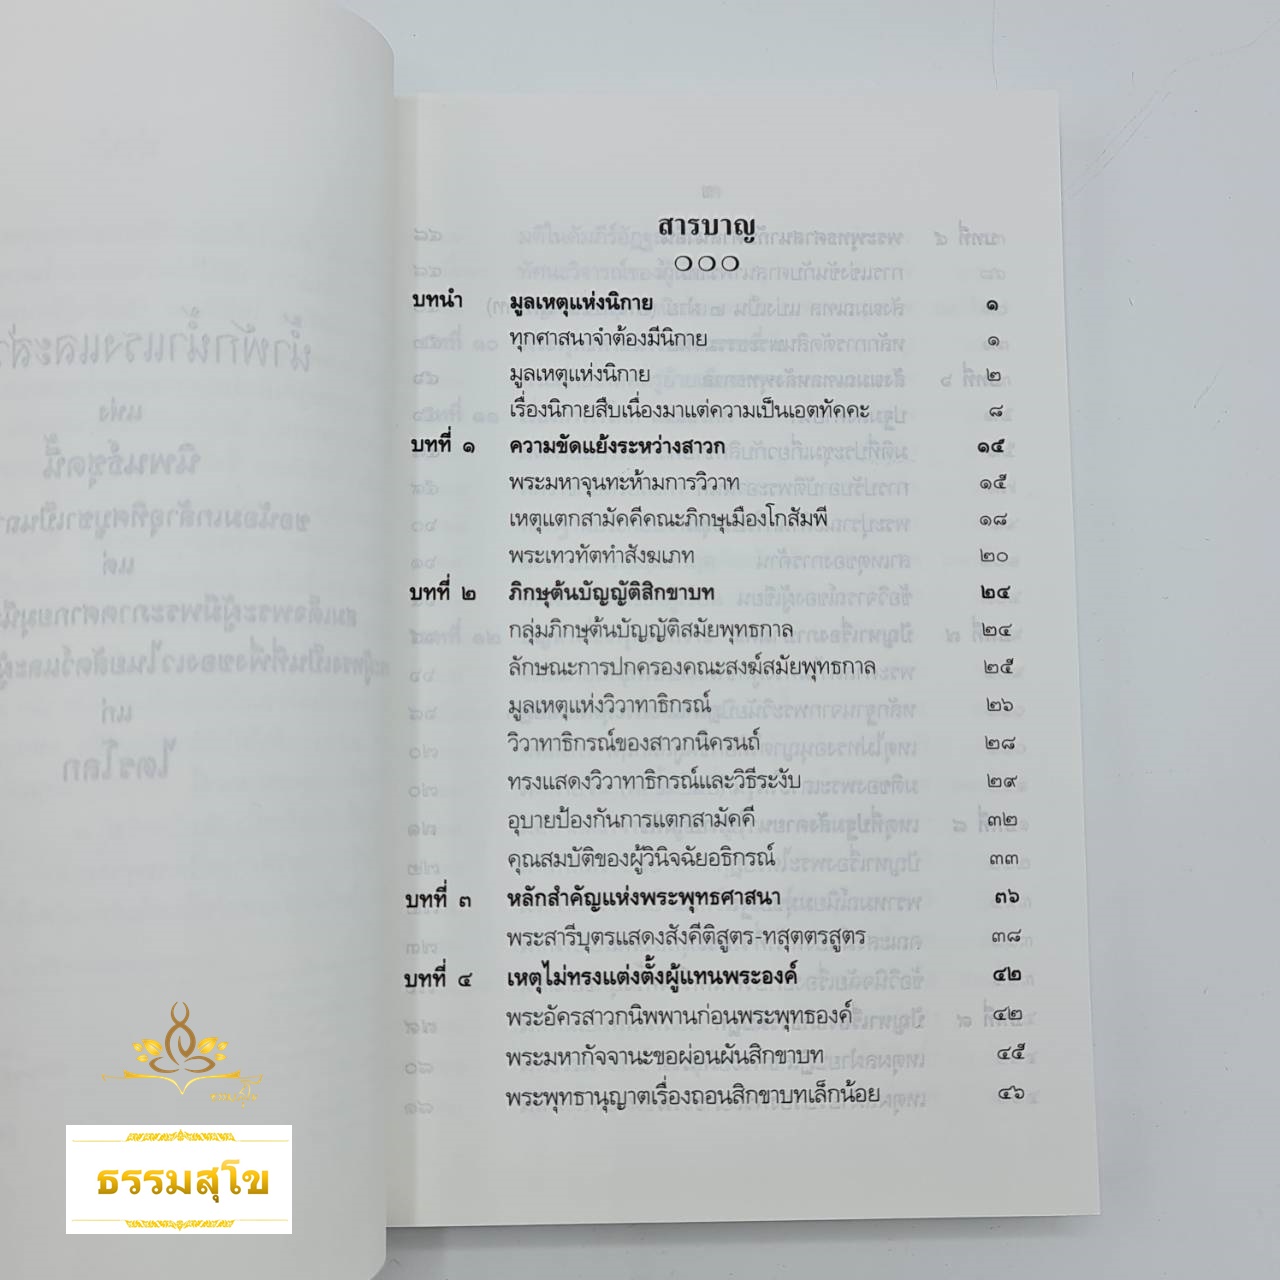 สารบาญ
บทนำ มูลเหตุแห่งนิกาย ๑
ทุกศาสนาจำต้องมีนิกาย ๑
มูลเหตุแห่งนิกาย ๒
เรื่องนิกายสืบเนื่องมาแต่ความเป็นเอตทัคคะ ๘
บทที่ ๑ ความขัดแย้งระหว่างสาวก ๑๕
พระมหาจุนทะห้ามการวิวาท ๑๕
เหตุแตกสามัคคีคณะภิกษุเมืองโกสัมพี ๑๘
พระเทวทัตทำสังฆเภท ๒๐
บทที่ ๒ ภิกษุต้นบัญญัติสิกขาบท ๒๔
กลุ่มภิกษุต้นบัญญัติสมัยพุทธกาล ๒๔
ลักษณะการปกครองคณะสงฆ์สมัยพุทธกาล ๒๕
มูลเหตุแห่งวิวาทาธิกรณ์ ๒๖
วิวาทาธิกรณ์ของสาวกนิครนถ์ ๒๘
ทรงแสดงวิวาทาธิกรณ์และวิธีระงับ ๒๙
อุบายป้องกันการแตกสามัคคี ๓๒
คุณสมบัติของผู้วินิจฉัยอธิกรณ์ ๓๓
บทที่ ๓ หลักสำคัญแห่งพระพุทธศาสนา ๓๖
พระสารีบุตรแสดงสังคีติสูตร-ทสุตตรสูตร ๓๘
บทที่ ๔ เหตุไม่ทรงแต่งตั้งผู้แทนพระองค์ ๔๒
พระอัครสาวกนิพพานก่อนพระพุทธองค์ ๔๒
พระมหากัจจานะขอผ่อนผันสิกขาบท ๔๕
พระพุทธานุญาตเรื่องถอนสิกขาบทเล็กน้อย ๔๖
ธรรมสุโข